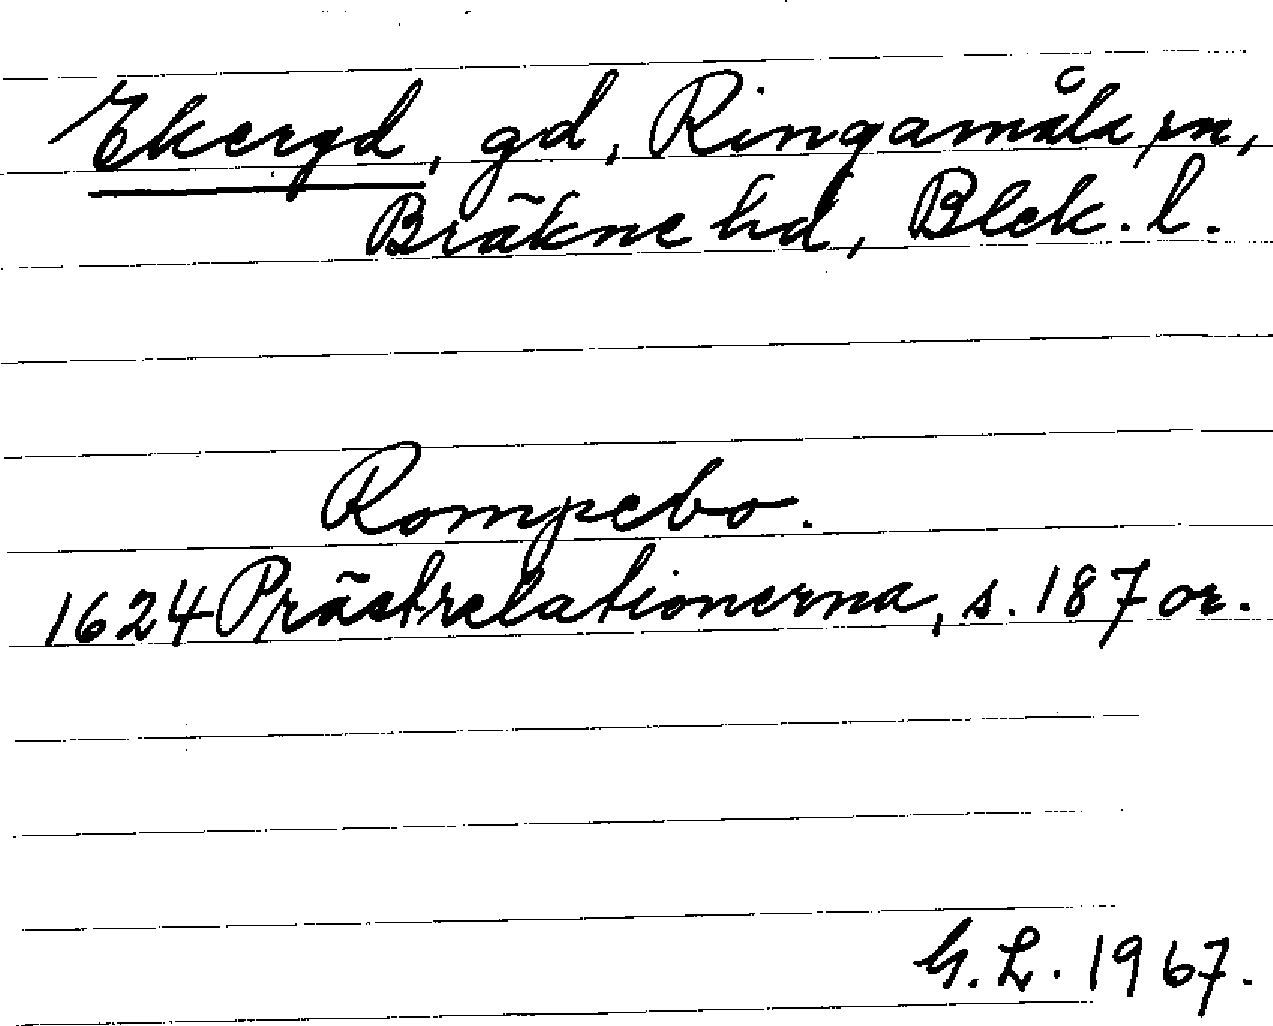 Ekeryd, gd, Ringamåla sn,
Bräkne hd, Blek. l.
Rompebo.
1624 Prästrelationerna, s. 187 or.
G. L. 1967.